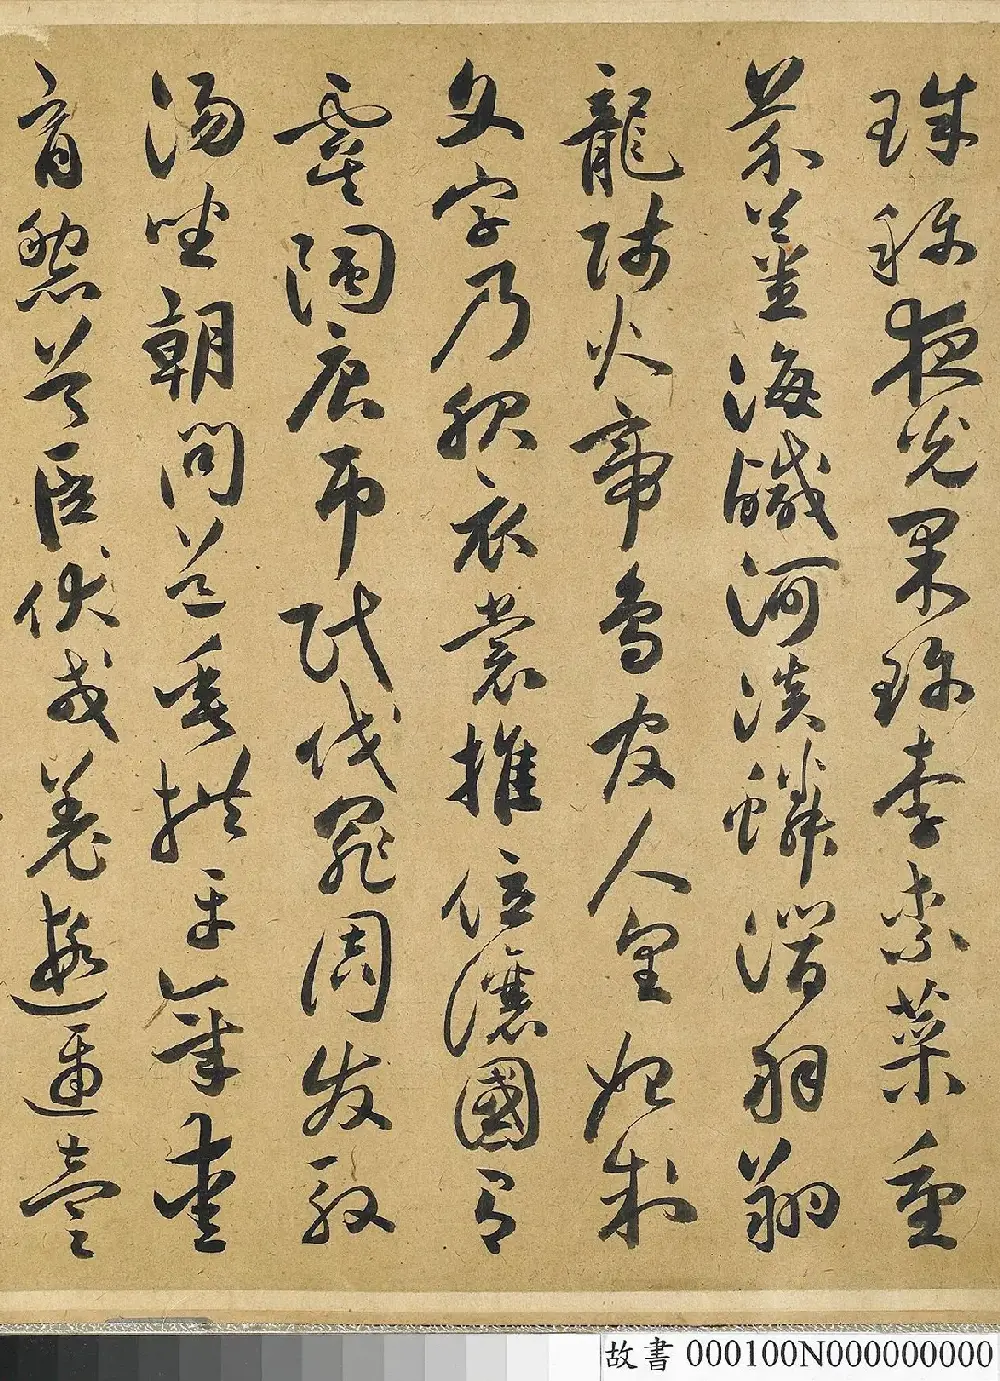 珠稱夜光果珍李柰菜重
芥薑海鹹河淡鱗潛羽翔
龍師火帝鳥官人皇始制
文字乃服衣裳推位讓國有
虞陶唐弔民伐罪周發殷
湯坐朝問道垂拱平章愛
育黎首臣伏戎羌遐邇壹
故書 000100N000000000